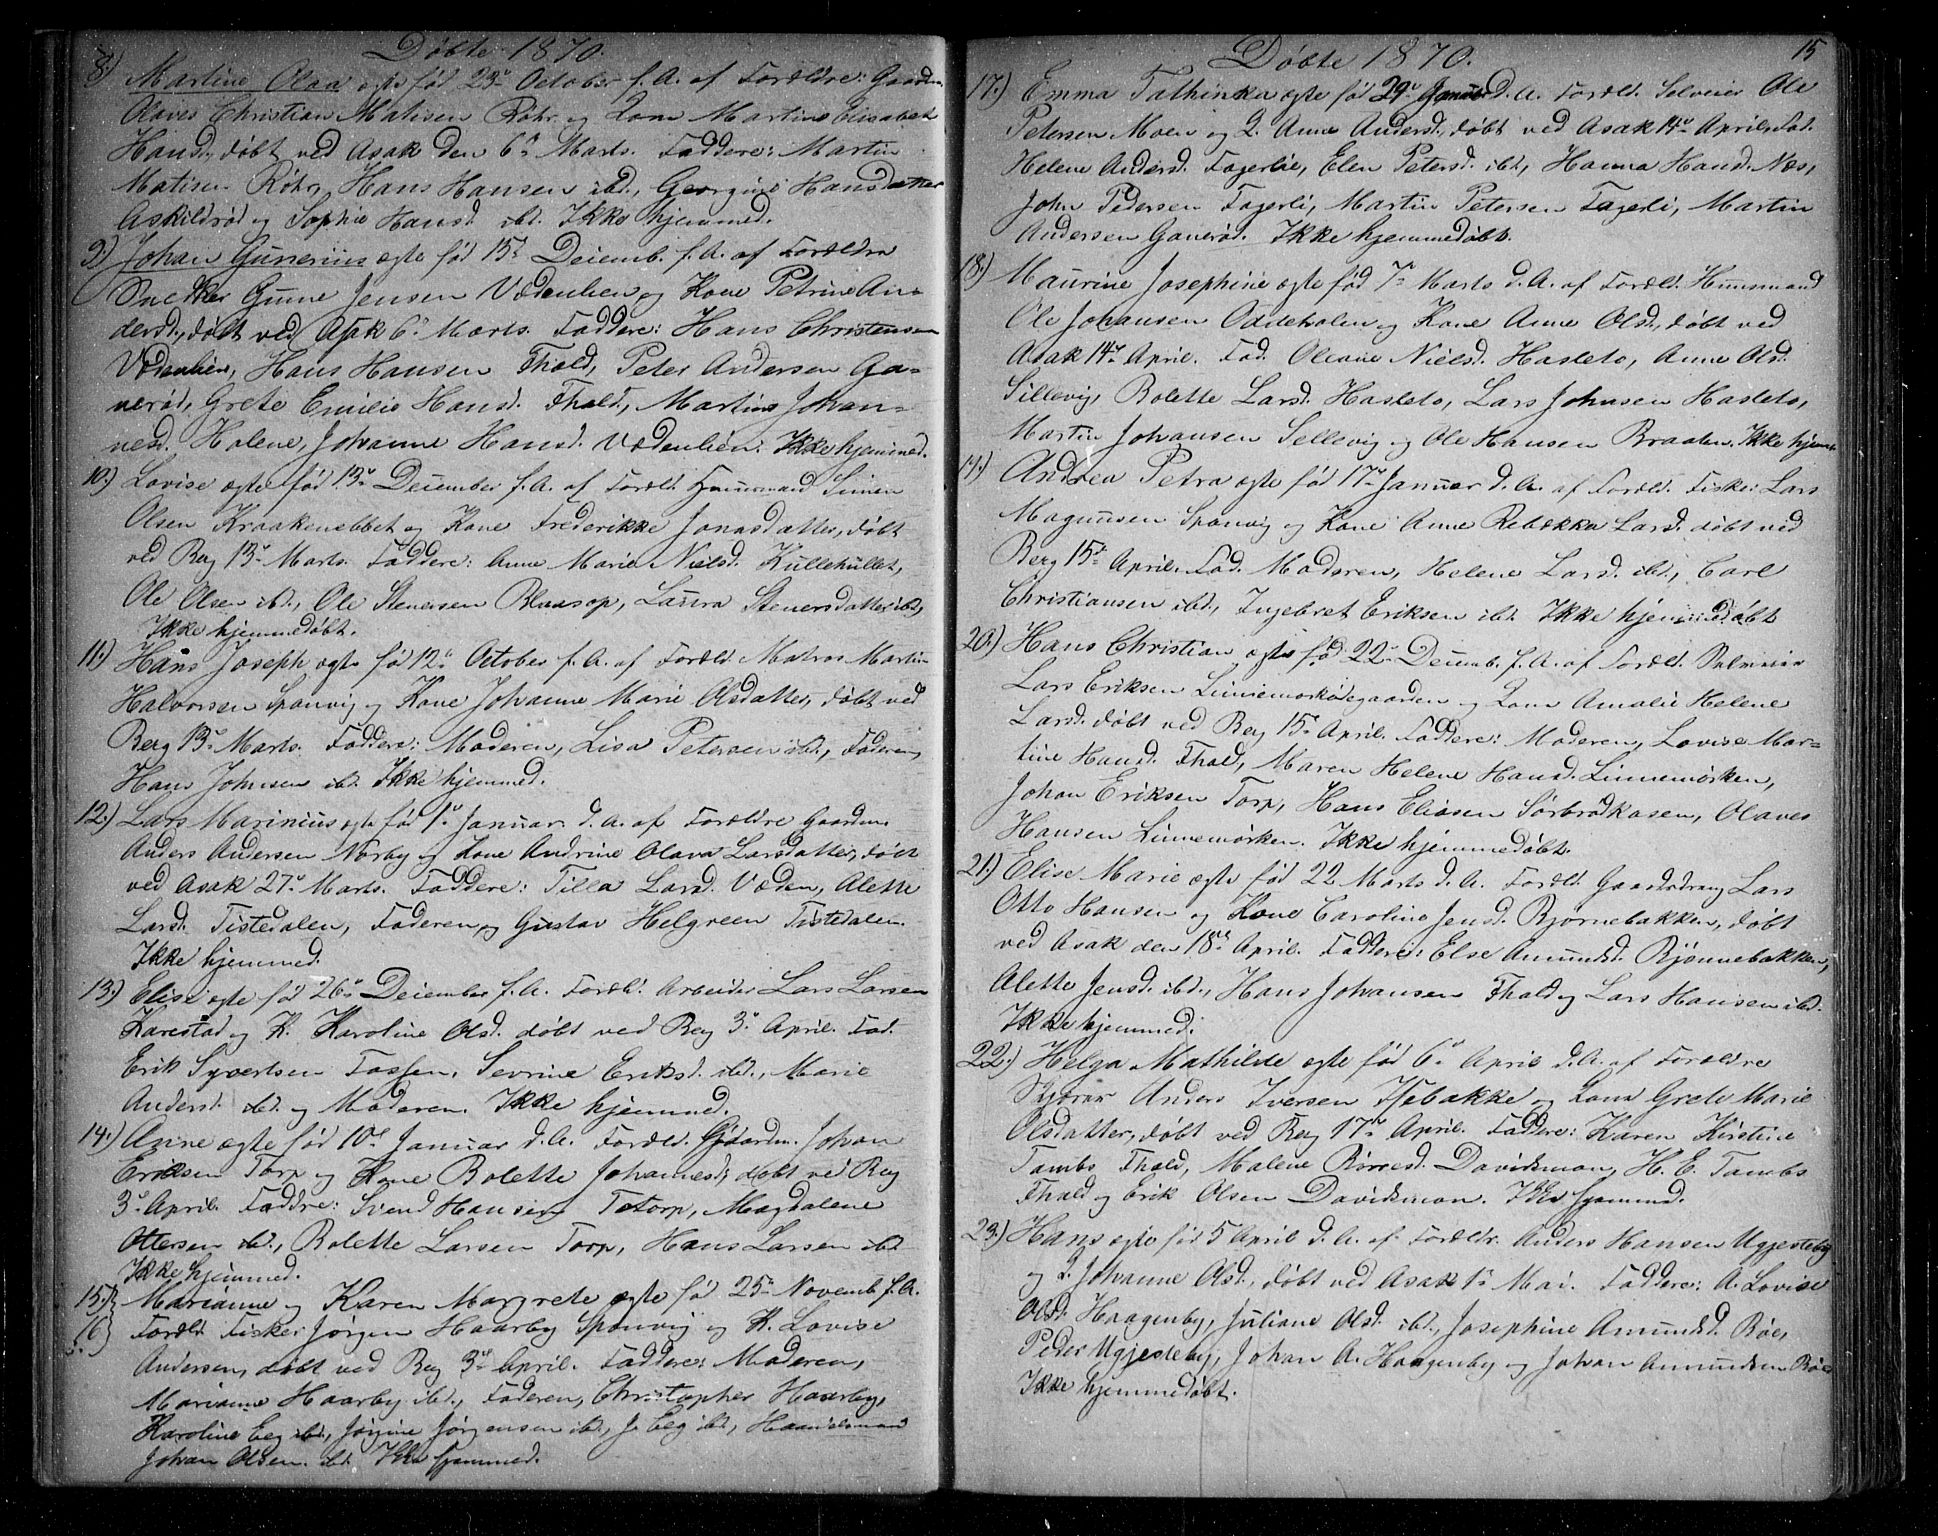 Døbte 1870.
8.) Martine Olaa ægte fød 23de October f. A. af Forældre: Gaardm.
Olaves Christian Matisen Röhr og Kone Martine Elisabet
Hansd., døbt ved Asak den 6te Marts. Faddere: Martin
Matisen Röhr, Hans Hansen ibd., Georgine Hansdatter
Askildrød og Sophie Hansd. ibd. Ikke hjemmed.
9) Johan Gunerius ægte fød 15de Decemb. f. A. af Forældre
Snedker Gune Jensen Vedenlien og Kone Petrine An-
dersd., døbt ved Asak 6te Marts. Faddere: Hans Christensen
Vedenlien, Hans Hansen Fhald, Peter Andersen Ga-
nerød, Grete Emilie Hansd. Fhald, Martine Johan-
nesd. Holene, Johanne Hansd. Vedenlien. Ikke hjemmed.
10.) Lovise ægte fød 13de December f. A. af Foræld. Huusmand Simen
Olsen Kraakenebbet og Kone Frederikke Jonasdatter, døbt
ved Berg 13de Marts. Faddere: Anne Marie Nielsd. Kullehullet,
Ole Olsen ibd., Ole Stenersen Blaasop, Laura Stenersdatter ibd.,
Ikke hjemmedøbt.
11.) Hans Joseph ægte fød 12te October f. A. af Foræld. Matros Martin
Halvorsen Sponvig og Kone Johanne Marie Olsdatter, døbt ved
Berg 13de Marts. Faddere: Moderen, Lisa Petersen ibd., Faderen,
Hans Johnsen ibd. Ikke hjemmed.
12.) Lars Marinius ægte fød 1ste Januar d. A. af Forældre Gaardm.
Anders Andersen Norby og Kone Andrine Olava Larsdatter, døbt
ved Asak 27de Marts. Faddere: Tilla Larsd. Veden, Alette
Larsd. Tistedalen, Faderen og Gustav Helgreen Tistedalen.
Ikke hjemmed.
13.) Elise ægte fød 26de December f. A. Foræld. Arbeider Lars Larsen
Karestad og K. Karoline Olsd. døbt ved Berg 3de April. Fad.
Erik Syvertsen Fosjen, Sevrine Eriksd. ibd., Marie
Andersd. ibd. og Moderen. Ikke hjemmed.
14.) Anne ægte fød 10de Januar d. A. Foræld. Gaardm. Johan
Eriksen Torp og Kone Bolette Johannesd. døbt ved Berg
3de April. Faddre: Svend Hansen Totorp, Magdalene
Ottersen ibd., Bolette Larsen Torp, Hans Larsen ibd.
Ikke hjemmed.
15.) Marianne og Karen Margrete ægte fød 25de Novemb. f. A.
16) Foræld. Fisker Jørgen Haarby Sponvig og K. Lovise
Andersen, døbt ved Berg 3de April. Faddere: Moderen,
Marianne Haarby ibd., Faderen, Christopher Haarby,
Karoline Eeg ibd., Jørgine Jørgensen ibd., J. Eeg ibd., Handelsmand
Johan Olsen ibd. Ikke hjemmed.
15
Døbte 1870.
17.) Emma Fathinka ægte fød 29de Januar d. A. Foræld. Selveier Ole
Petersen Moen og K. Anne Andersd., døbt ved Asak 14de April. Fad.
Helene Andersd. Fagerlie, Elen Petersd. ibd., Hanna Hansd. Næs,
John Pedersen Fagerli, Martin Petersen Fagerli, Martin
Andersen Ganerød. Ikke hjemmedøbt.
18.) Maurine Josephine ægte fød 7de Marts d. A. af Foræld. Huusmand
Ole Johansen Oddedalen og Kone Anne Olsd., døbt ved
Asak 14de April. Fad. Oleane Nielsd. Hasleto, Anne Olsd.
Sillevig, Bolette Larsd. Hasleto, Lars Johnsen Hasleto,
Martin Johansen Sellevig og Ole Hansen Braaten. Ikke hjemme
19.) Andrea Petra ægte fød 17de Januar d. A. af Foræld. Fisker Lars
Magnusen Sponvig og Kone Anne Rebekka Larsd. døbt ved
Berg 15de April. Fad. Moderen, Helene Larsd. ibd., Carl
Christiansen ibd., Ingebret Eriksen ibd. Ikke hjemmedøbt
20.) Hans Christian ægte fød 22de Decemb. f. A. af Foræld. Selveier
Lars Eriksen Linnemørkødegaarden og Kone Amalie Helene
Larsd. døbt ved Berg 15de April. Faddere: Moderen, Lovise Mar-
tine Hansd. Fhald, Maren Helene Hansd. Linnemörken,
Johan Eriksen Torp, Hans Eliasen Sørbrødkasen, Olaves
Hansen Linnemörken. Ikke hjemmedøbt.
21.) Elise Marie ægte fød 22 Marts d. A. Foræld. Gaardsdreng Lars
Otto Hansen og Kone Caroline Jensd. Bjørnebakken, døbt
ved Asak den 18de April. Faddere: Else Amundsd. Bjönnebakken,
Alette Jensd. ibd., Hans Johansen Fhald og Lars Hansen ibd.
Ikke hjemmed.
22.) Helga Mathilde ægte fød 6te April d. A. af Forældre
Anders Iversen Isebakke og Kone Grete Marie
Olsdatter, døbt ved Berg 17de April. Faddere: Karen Kirstine
Tambs Fhald, Malene Börresd. Davidsmon, H. E. Tambs
Fhald og Erik Olsen Davidsmon. Ikke hjemmed.
23.) Hans ægte fød 5 April d. A. af Forældr. Anders Hansen Uggesteby
og K. Johanne Olsd., døbt ved Asak 1ste Mai. Faddere: A. Lovise
Olsd. Haagenby, Juliane Olsd. ibd., Josephine Amundsd. Böe,
Peder Uggesteby, Johan A. Haagenby og Johan Amundsen Böe
Ikke hjemmedøbt.